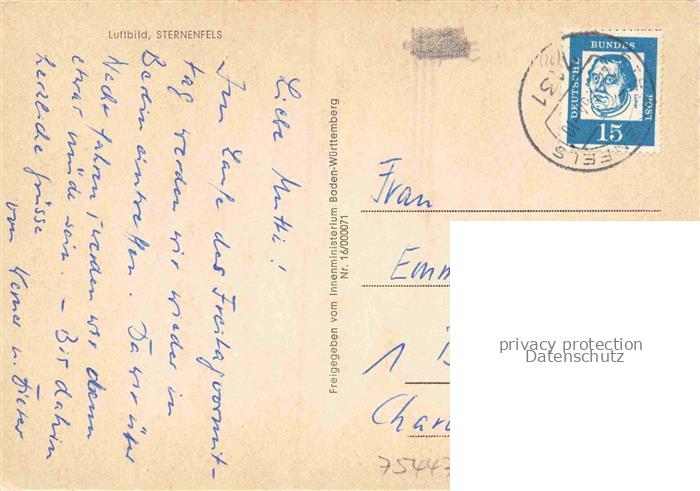 Luftbild, STERNENFELS
Liebe Mutti!
Im Laufe des Freitagvormit-
tag werden wir wieder in
Berlin eintreffen. Da wir über
Nacht fahren, werden wir dann
etwas müde sein. – Bis dahin
herzliche Grüsse
von Werner u. Dieter
Freigegeben vom Innenministerium Baden-Württemberg
Nr. 16/000071
DEUTSCHE
BUNDES
POST
15
7131
Frau
Emm
1 B
Char
75447
privacy protection
Datenschutz